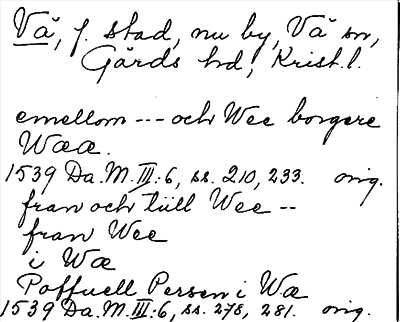 Vä, f. stad, nu by, Vä sn,
Gärds hd, Krist. l.
emellom --- och Wee borgere
Wææ.
1539 Da. M. III:6, ss. 210, 233. orig.
fran och tiill Wee --
fran Wee
i Wæ
Poffuell Persen i Wæ
1539 Da. M. III:6, ss. 278, 281. orig.